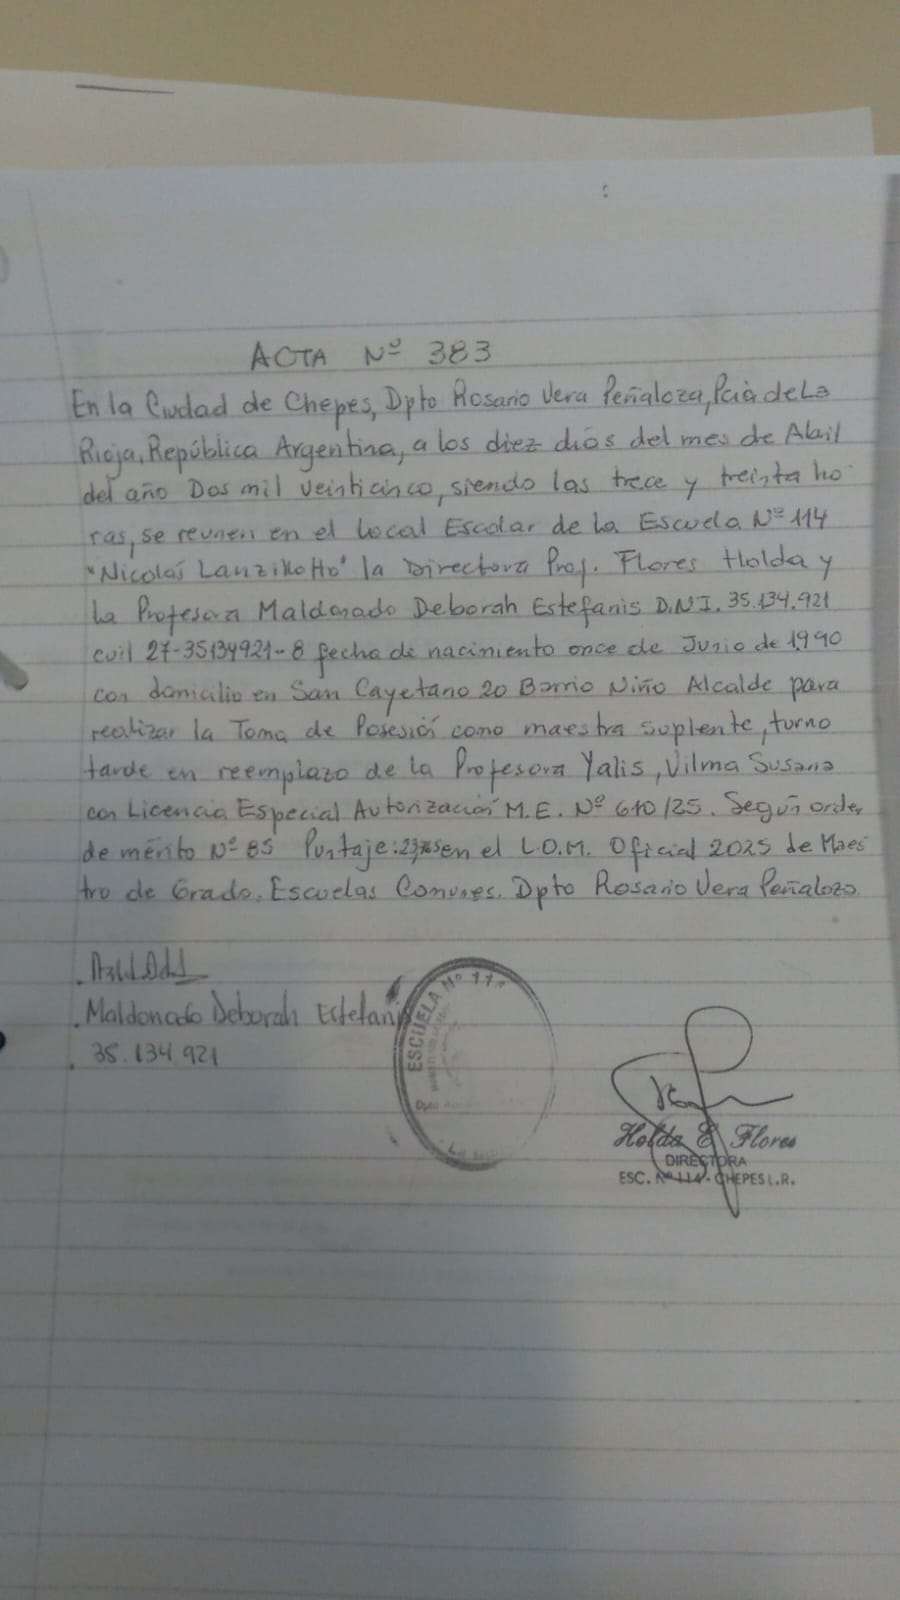 ACTA Nº 383
En la Ciudad de Chepes, Dpto Rosario Vera Peñaloza, Pcia de La
Rioja, República Argentina, a los diez días del mes de Abril
del año Dos mil veinticinco, siendo las trece y treinta ho
ras, se reunen en el local Escolar de la Escuela Nº 114
"Nicolás Lanzillotto" la Directora Prof. Flores Holda y
la Profesora Maldonado Deborah Estefanis D.N.I. 35.134.921
cuil 27-35134921-8 fecha de nacimiento once de Junio de 1990
con domicilio en San Cayetano 20 Barrio Niño Alcalde para
realizar la Toma de Posesión como maestra suplente, turno
tarde en reemplazo de la Profesora Yalis, Vilma Susana
con Licencia Especial Autorización M.E. Nº 610/25. Según orden
de mérito Nº 85 Puntaje: en el L.O.M. Oficial 2025 de Maes
tro de Grado. Escuelas Comunes. Dpto Rosario Vera Peñaloza
Maldonado Deborah Estefanis
35.134.921
ESCUELA Nº
Dpto
Holda E. Flores
DIRECTORA
ESC. Nº 114 - CHEPES L.R.